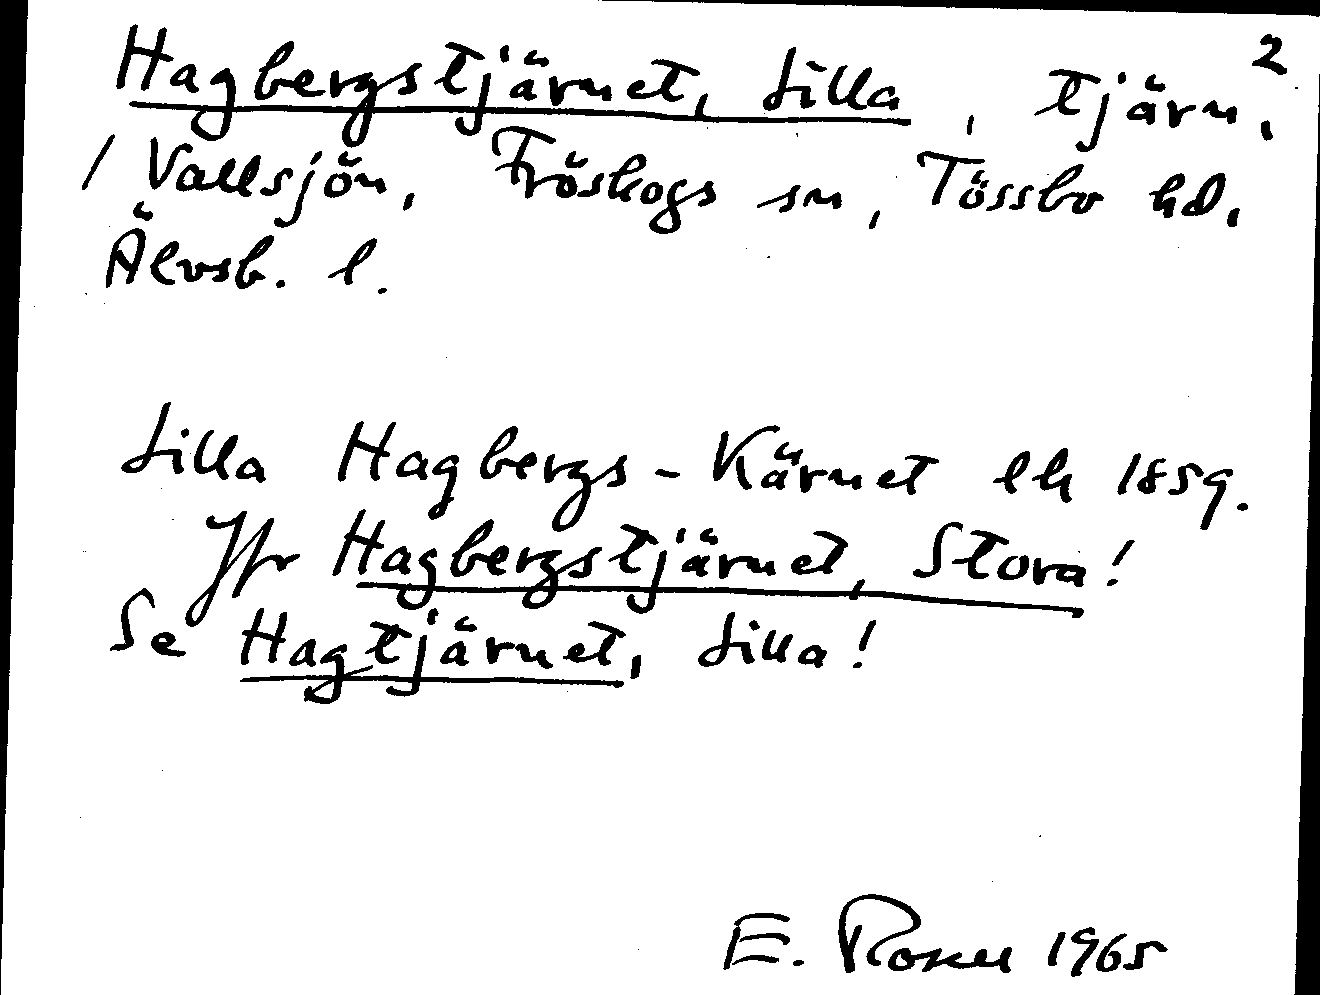 2
Hagbergstjärnet, Lilla, tjärn,
/ Vallsjön, Fröskogs sn, Tössbo hd,
Älvsb. l.
Lilla Hagbergs-Kärnet lh 1859.
Jfr Hagbergstjärnet, Stora!
Se Hagtjärnet, Lilla!
E. Rosen 1965